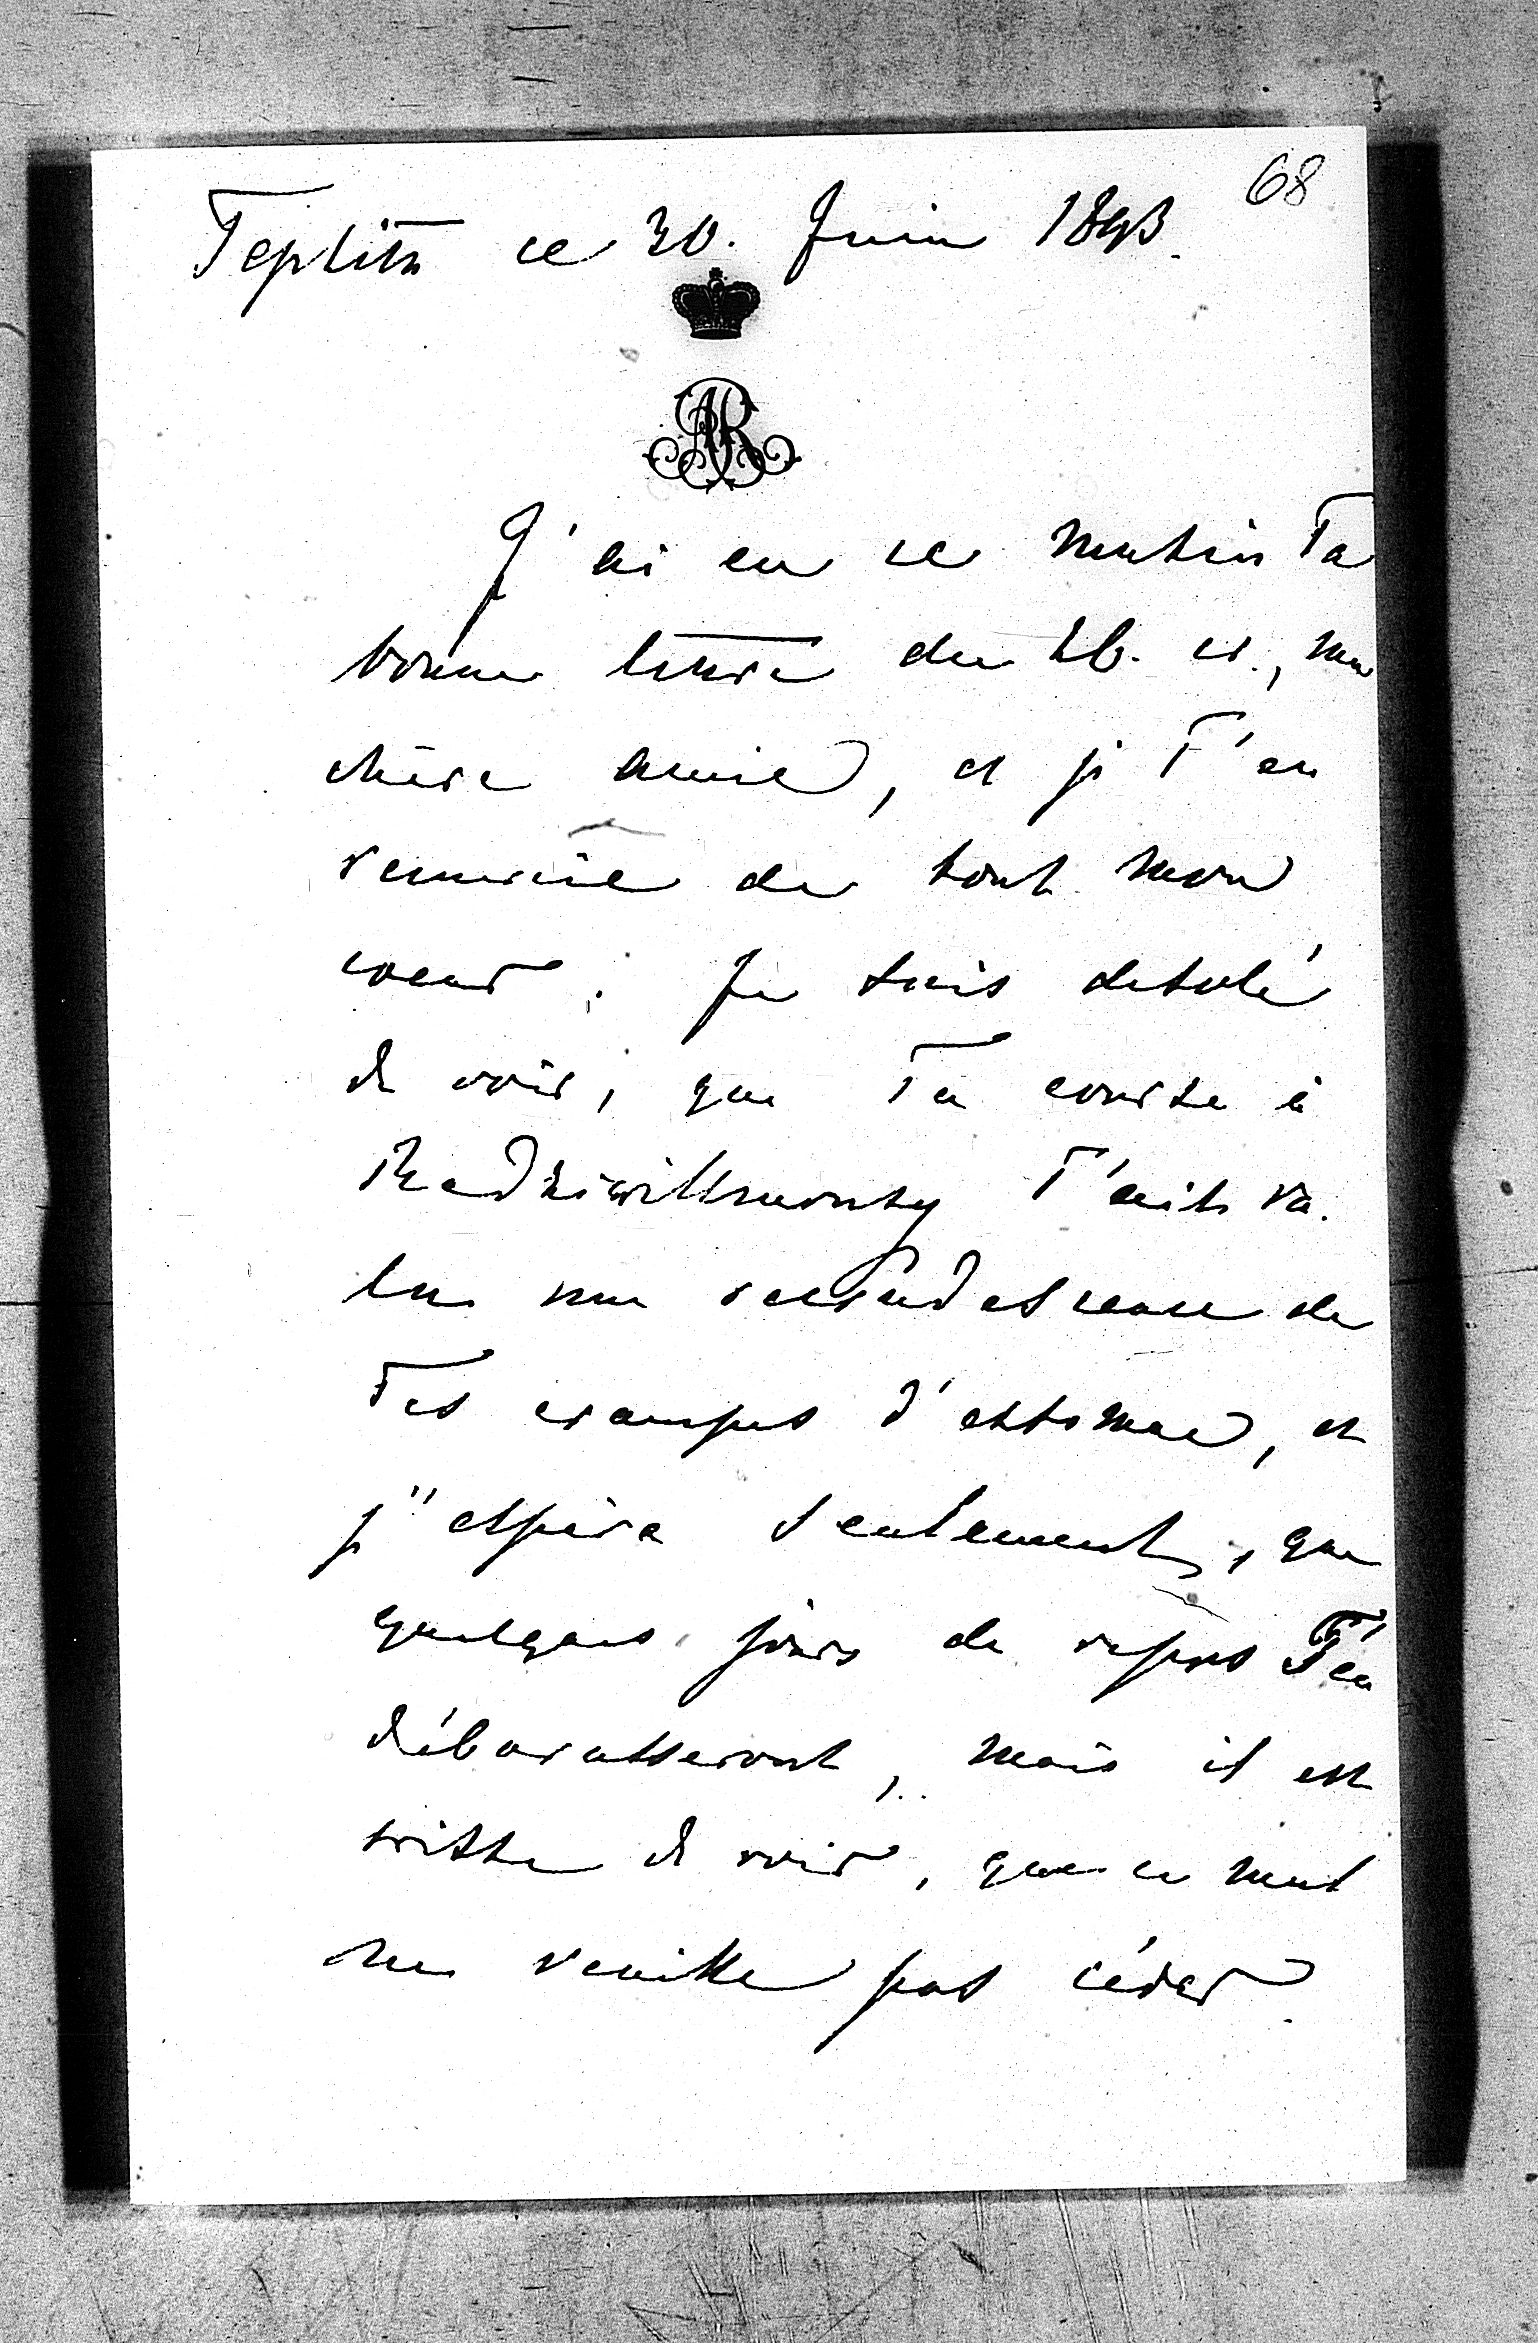 68
Teplitz ce 30. Juin 1893.
AR
J'ai eu ce matin Ta
bonne lettre du 26. cr., ma
chère amie, et je T'en
remercie de tout mon
coeur. Je suis desolé
de voir, que Ta course à
Radziwillmonty T'ait va.
lu une recrudescence de
Tes crampes d'estomac, et
j'espère seulement, que
quelques jours de repos T'en
débarasseront, mais il est
triste de voir, que ce mal
ne veuille pas céder.